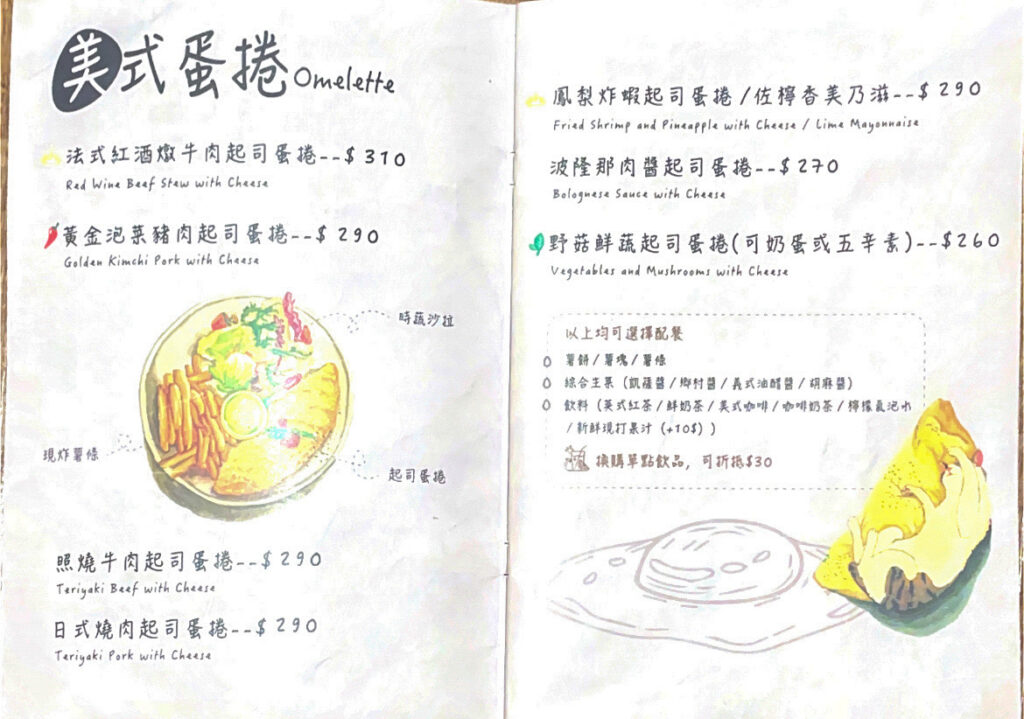 美式蛋捲 Omelette
法式紅酒燉牛肉起司蛋捲--$310
Red Wine Beef Stew with Cheese
黃金泡菜豬肉起司蛋捲--$290
Golden Kimchi Pork with Cheese
時蔬沙拉
現炸薯條
起司蛋捲
照燒牛肉起司蛋捲--$290
Teriyaki Beef with Cheese
日式燒肉起司蛋捲--$290
Teriyaki Pork with Cheese
鳳梨炸蝦起司蛋捲/佐檸香美乃滋--$290
Fried Shrimp and Pineapple with Cheese / Lime Mayonnaise
波隆那肉醬起司蛋捲--$270
Bolognese Sauce with Cheese
野菇鮮蔬起司蛋捲(可奶蛋或五辛素)--$260
Vegetables and Mushrooms with Cheese
以上均可選擇配餐
薯餅/薯塊/薯條
綜合生菜 (凱薩醬/鄉村醬/義式油醋醬/胡麻醬)
飲料 (英式紅茶/鮮奶茶/美式咖啡/咖啡奶茶/檸檬氣泡水
/新鮮現打果汁 (+10$) )
換購單點飲品, 可折抵$30